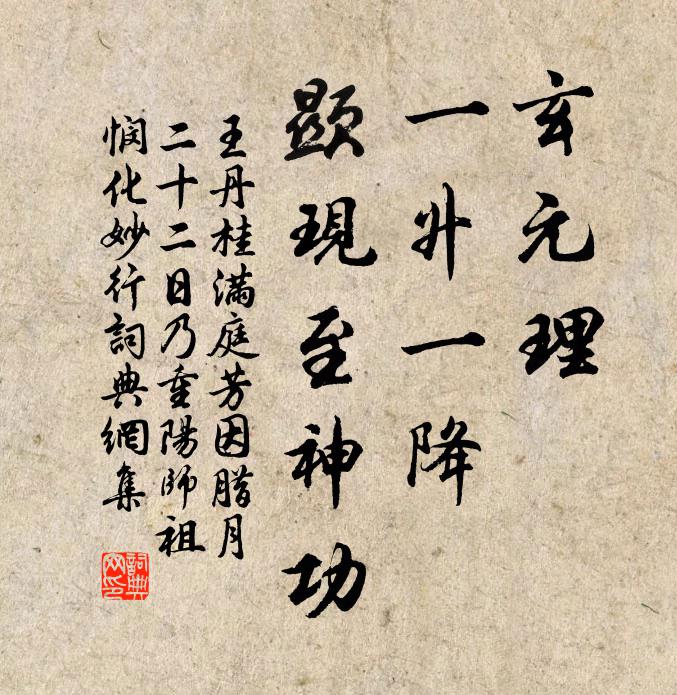 玄元理
一升一降
顯現至神功
王丹桂滿庭芳因腊月
二十二日乃重陽師祖
憫化妙行詞典網集
詞典网印